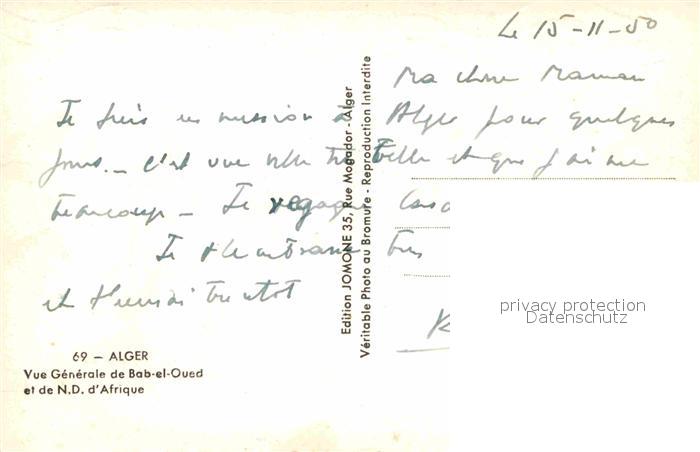 Le 15-11-50
Ma chère Maman
Je suis en mission à Alger pour quelques
jours. - C'est une ville très belle et que j'aime
beaucoup - Je regagne Casa
Je t'embrasse très
et t'écrirai bientôt
69 - ALGER
Vue Générale de Bab-el-Oued
et de N.D. d'Afrique
Edition JOMONE 35, Rue Mogador - Alger
Véritable Photo au Bromure - Reproduction Interdite
privacy protection
Datenschutz